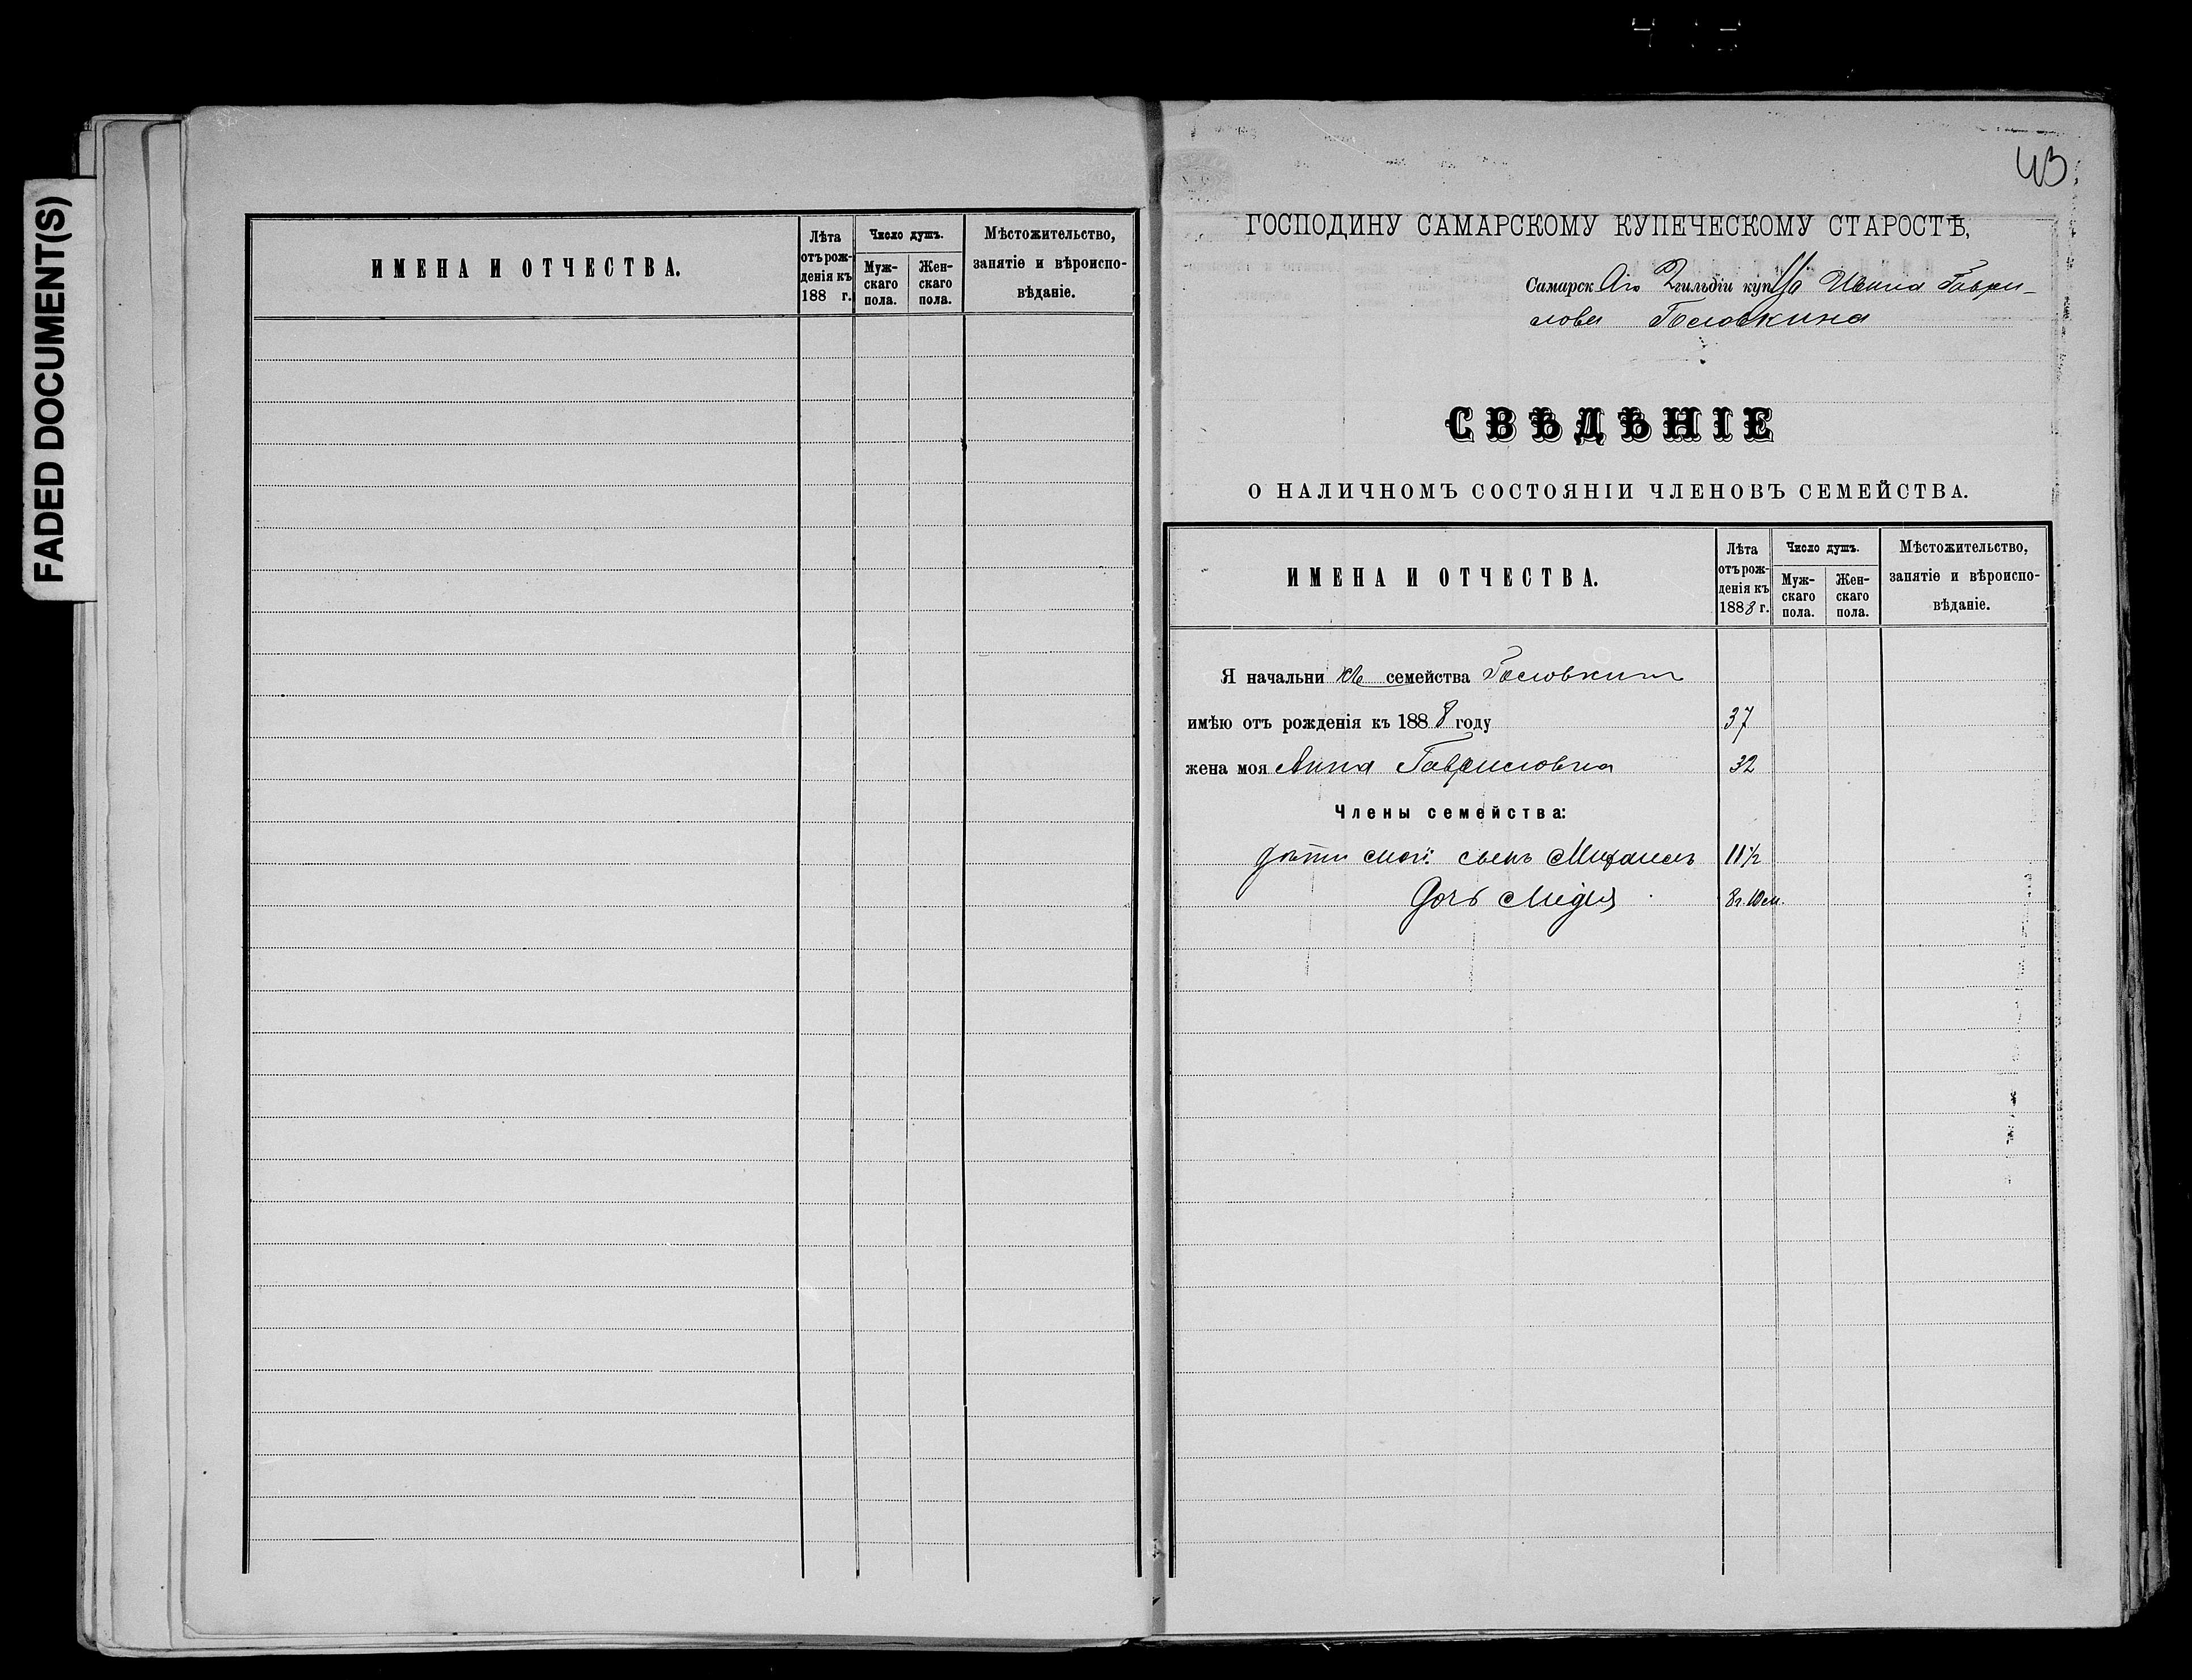 FADED DOCUMENT(S)
ИМЕНА И ОТЧЕСТВА.
Лѣта
отъ рож-
денія къ
188 г.
Число душъ.
Муж-
скаго
пола.
Жен-
скаго
пола.
Мѣстожительство,
занятіе и вѣроиспо-
вѣданіе.
43
ГОСПОДИНУ САМАРСКОМУ КУПЕЧЕСКОМУ СТАРОСТѢ,
Самарскаго 2 гильдіи куп Ивана Гаври-
лова Головкина
СВѢДѢНІЕ
О НАЛИЧНОМЪ СОСТОЯНІИ ЧЛЕНОВЪ СЕМЕЙСТВА.
ИМЕНА И ОТЧЕСТВА.
Лѣта
отъ рож-
денія къ
1888 г.
Число душъ.
Муж-
скаго
пола.
Жен-
скаго
пола.
Мѣстожительство,
занятіе и вѣроиспо-
вѣданіе.
Я начальникъ семейства Головкинъ
имѣю отъ рожденія къ 1888 году 37
жена моя Анна Гавриловна 32
Члены семейства:
дѣти мои: сынъ Михаилъ 11½
Дочь Лидія 8 г. 10 м.